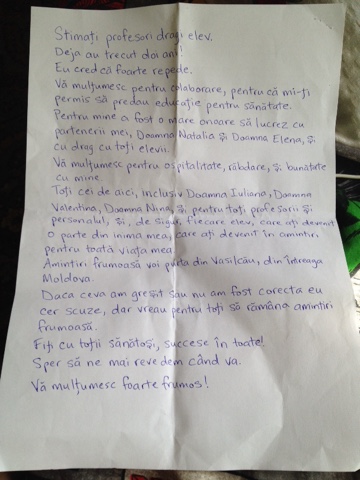 Stimați profesori dragi elev.
Deja au trecut doi ani!
Eu cred că foarte repede.
Vă mulțumesc pentru colaborare, pentru că mi-ți
permis să predau educație pentru sănătate.
Pentru mine a fost o mare onoare să lucrez cu
partenerii mei, Doamna Natalia și Doamna Elena, și
cu drag cu toți elevii.
Vă mulțumesc pentru ospitalitate, răbdare, și bunătate
cu mine.
Toți cei de aici, inclusiv Doamna Iuliana, Doamna
Valentina, Doamna Nina, și pentru toți profesorii și
personalul, și, de sigur, fiecare elev, care ați devenit
o parte din inima mea, care ați devenit în amintiri
pentru toată viața mea.
Amintiri frumoasă voi purta din Vasilcău, din întreaga
Moldova.
Daca ceva am greșit sau nu am fost corecta eu
cer scuze, dar vreau pentru toți să rămâna amintiri
frumoasă.
Fiți cu toții sănătoși, succese în toate!
Sper să ne mai revedem când va.
Vă mulțumesc foarte frumos!